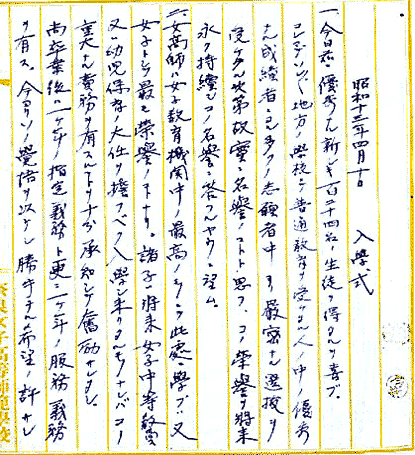 昭和十三年四月十日　入學式
一、今日茲ニ優秀ナル新シキ百二十四名ノ生徒ヲ得タルヲ喜ブ。
コレラハ地方ノ學校ニ普通教育ヲ受ケタル人ノ中ノ優秀
ナル成績者ニシテ多クノ志願者中ヨリ嚴密ナル選拔ヲ
受ケタル次第故實ニ名譽ノコトト思フ、コノ榮譽ヲ將來
永ク持續シテコノ名譽ニ答ヘルヤウニ望ム。
二、女高師ハ女子教育機關中ノ最高ノモノ此處ニ學ブハ又
女子トシテ最モ榮譽ノコトナリ。諸子ハ將來女子中等教育
又ハ幼兒保育ノ大任ヲ擔フベク入學シ來リタルモノナレバコノ
重大ナル責務ヲ有スルコトヲ承知シテ奮勵サレタシ。
尚卒業後ハ一ケ年ノ指定義務ト更ニ二ケ年ノ服務義務
ヲ有ス。今ヨリソノ覺悟ヲ以テシ勝手ナル希望ハ許サレ
奈良女子高等師範學校